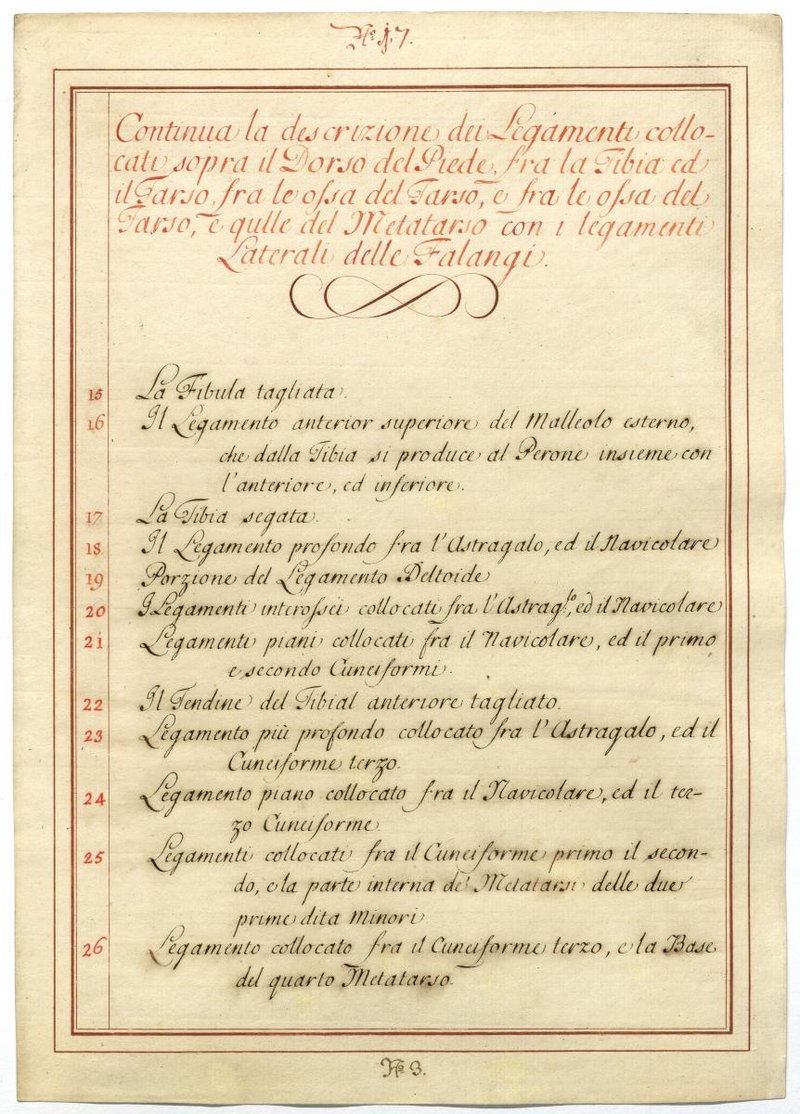 No. 17.
Continua la descrizione dei Legamenti collo-
cati sopra il Dorso del Piede, fra la Tibia ed
il Tarso, fra le ossa del Tarso, e fra le ossa del
Tarso, e qulle del Metatarso con i legamenti
Laterali delle Falangi.
15 La Fibula tagliata.
16 Il Legamento anterior superiore del Malleolo esterno,
che dalla Tibia si produce al Perone insieme con
l'anteriore, ed inferiore.
17 La Tibia segata.
18 Il Legamento profondo fra l'Astragalo, ed il Navicolare
19 Porzione del Legamento Deltoide
20 I Legamenti interossei collocati fra l'Astrag.lo, ed il Navicolare
21 Legamenti piani collocati fra il Navicolare, ed il primo
e secondo Cuneiformi.
22 Il Tendine del Tibial anteriore tagliato.
23 Legamento più profondo collocato fra l'Astragalo, ed il
Cuneiforme terzo.
24 Legamento piano collocato fra il Navicolare, ed il ter-
zo Cuneiforme.
25 Legamenti collocati fra il Cuneiforme primo il secon-
do, e la parte interna de' Metatarsi delle due
prime dita minori
26 Legamento collocato fra il Cuneiforme terzo, e la Base
del quarto Metatarso.
No. 3.